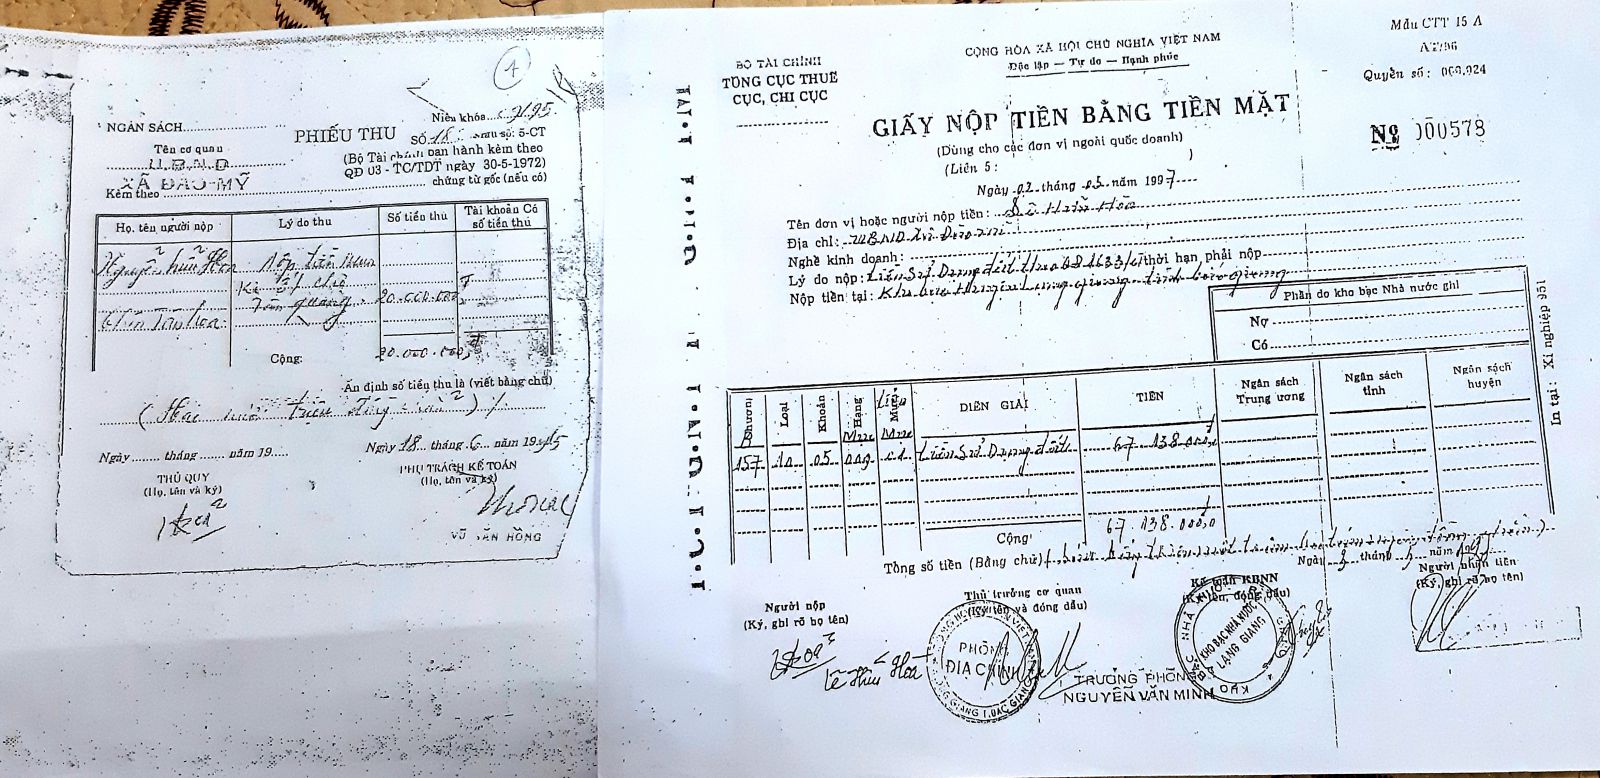 1
NGÂN SÁCH
Niên khóa 1995
PHIẾU THU
Số 18 Mẫu số: 5-CT
Tên cơ quan
U.B.N.D
XÃ ĐÀO MỸ
(Bộ Tài chính ban hành kèm theo
QĐ 03 - TC/TDT ngày 30-5-1972)
Kèm theo chứng từ gốc (nếu có)
Họ, tên người nộp
Lý do thu
Số tiền thu
Tài khoản Có số tiền thu
Nguyễn Hữu
Nộp tiền
Ki ốt chợ
20.000.000đ
Cộng: 20.000.000đ
Ấn định số tiền thu là (viết bằng chữ)
(Hai mươi triệu đồng)
Ngày tháng năm 19
Ngày 18 tháng 6 năm 1995
THỦ QUỸ
(Họ, tên và ký)
PHỤ TRÁCH KẾ TOÁN
(Họ, tên và ký)
VŨ VĂN HỒNG
Mẫu CTT 15 A
AT/96
BỘ TÀI CHÍNH
TỔNG CỤC THUẾ
CỤC, CHI CỤC
CỘNG HÒA XÃ HỘI CHỦ NGHĨA VIỆT NAM
Độc lập — Tự do — Hạnh phúc
Quyển số: 000,924
GIẤY NỘP TIỀN BẰNG TIỀN MẶT
Nº 000578
(Dùng cho các đơn vị ngoài quốc doanh)
(Liên 5: )
Ngày 02 tháng 05 năm 1997
Tên đơn vị hoặc người nộp tiền: Lê Hữu Hòa
Địa chỉ: UBND Xã Đào Mỹ
Nghề kinh doanh:
Lý do nộp: Tiền Sử Dụng đất thời hạn, phải nộp
Nộp tiền tại: Kho bạc Huyện Lạng giang tỉnh bắc giang
Phần do kho bạc Nhà nước ghi
Nợ
Có
Chương
Loại
Khoản
Hạng
Mục
DIỄN GIẢI
TIỀN
Ngân sách Trung ương
Ngân sách tỉnh
Ngân sách huyện
157 10 05 009 01 Tiền Sử Dụng đất 67.138.000đ
Cộng 67.138.000đ
Tổng số tiền (Bằng chữ)
Ngày 3 tháng 5 năm 1997
Người nộp
(Ký, ghi rõ họ tên)
Thủ trưởng cơ quan
(Ký tên và đóng dấu)
Kế toán KBNN
(Ký tên, đóng dấu)
Người nhận tiền
(Ký, ghi rõ họ tên)
Lê Hữu Hòa
PHÒNG
ĐỊA CHÍNH
TRƯỞNG PHÒNG
NGUYỄN VĂN MINH
KHO BẠC NHÀ NƯỚC
LẠNG GIANG
In tại: Xí nghiệp 951